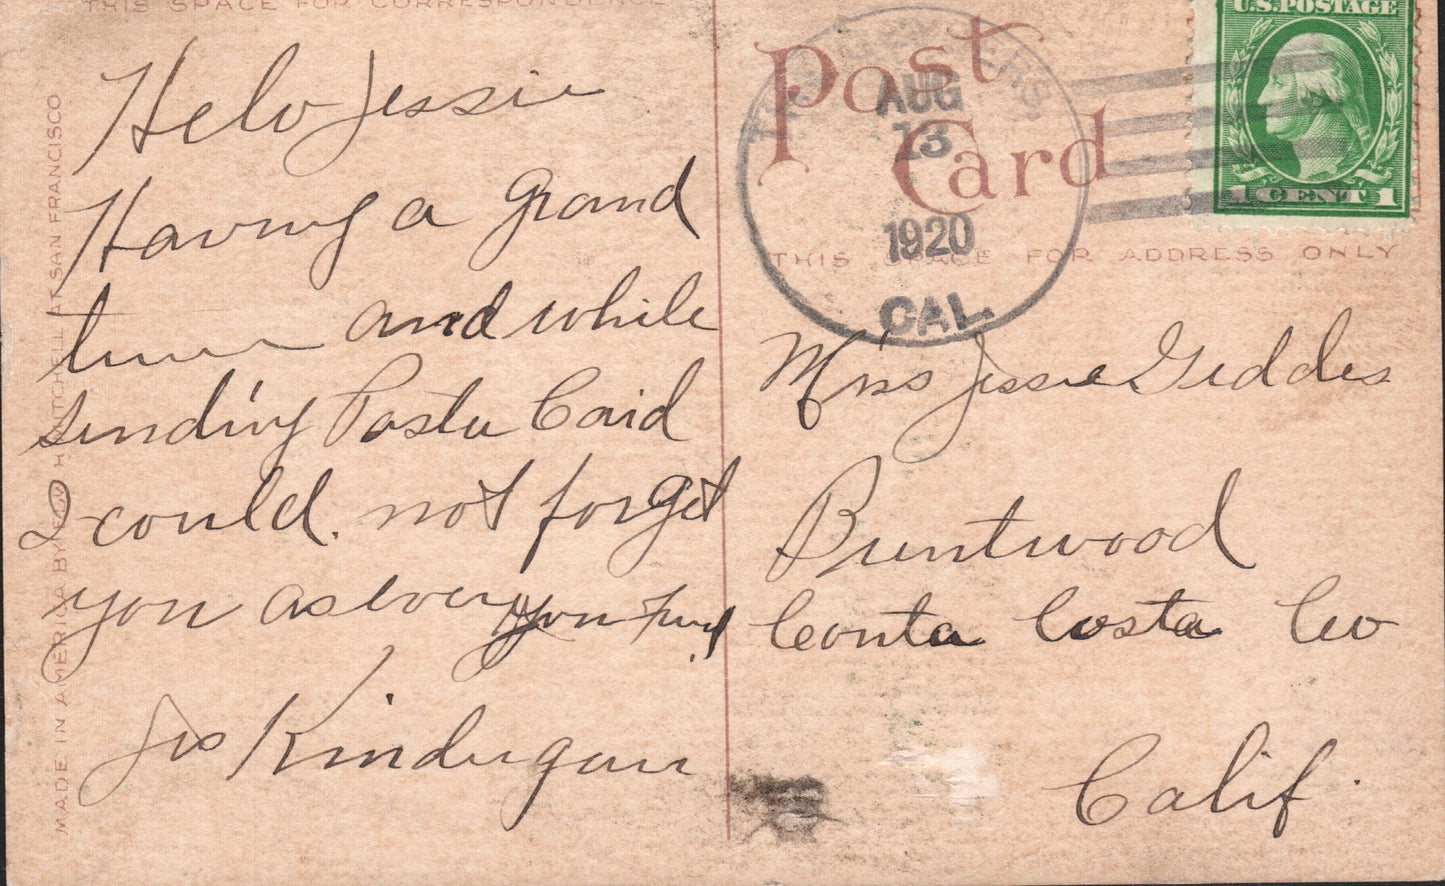 THIS SPACE FOR CORRESPONDENCE
Helo Jessie
Having a grand
time and while
sending Postu Card
I could. not forget
you as ever your Frend
Jos Kindregan
MADE IN AMERICA BY EDW H MITCHELL AT SAN FRANCISCO
Post
Card
AUG
13
1920
CAL.
U.S. POSTAGE
1 CENT 1
THIS SPACE FOR ADDRESS ONLY
Miss Jessie Geddes
Brentwood
Conta Costa Co
Calif.